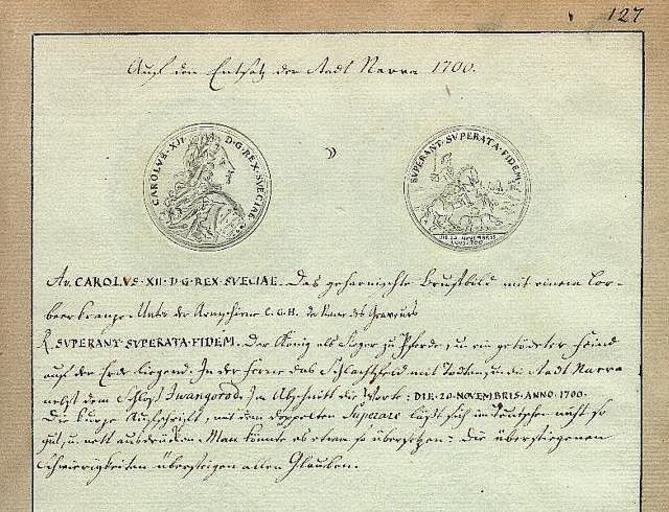 127
Auf den Entsatz der Stadt Narva 1700.
CAROLVS·XII· D·G·REX·SVECIAE·
SVPERANT·SVPERATA·FIDEM
DIE 20 NOVEMBRIS
ANNO 1700
Av. CAROLVS·XII·D·G·REX·SVECIAE. Das geharnischte Brustbild mit einem Lor-
beerkranze. Unter der Armschiene C.G.H. der Name des Graveurs
R. SVPERANT·SVPERATA·FIDEM. Der König als Sieger zu Pferde, u. ein getödteter Feind
auf der Erde liegend. In der Ferne das Schlachtfeld mit Todten, u. die Stadt Narva
nebst dem Schloß Iwangorod. Im Abschnitt die Worte: DIE·20·NOVEMBRIS·ANNO·1700·
Die kurze Aufschrift, mit dem doppelten Superare läßt sich im Teutschen nicht so
gut, u. nett ausdrücken. Man könnte es etwa so übersetzen: Die überstiegenen
Schwierigkeiten übersteigen allen Glauben.